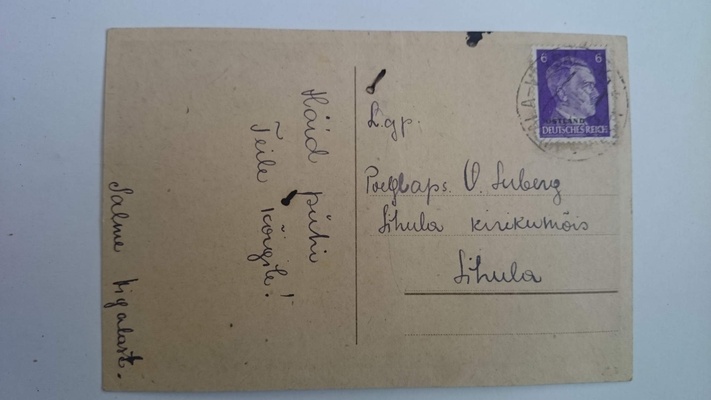 Häid pühi
Teile kõigile!
Salme Vigalast.
6 6
OSTLAND
DEUTSCHES REICH
L.gp.
O. Suberg
Lihula kirikumõis
Lihula